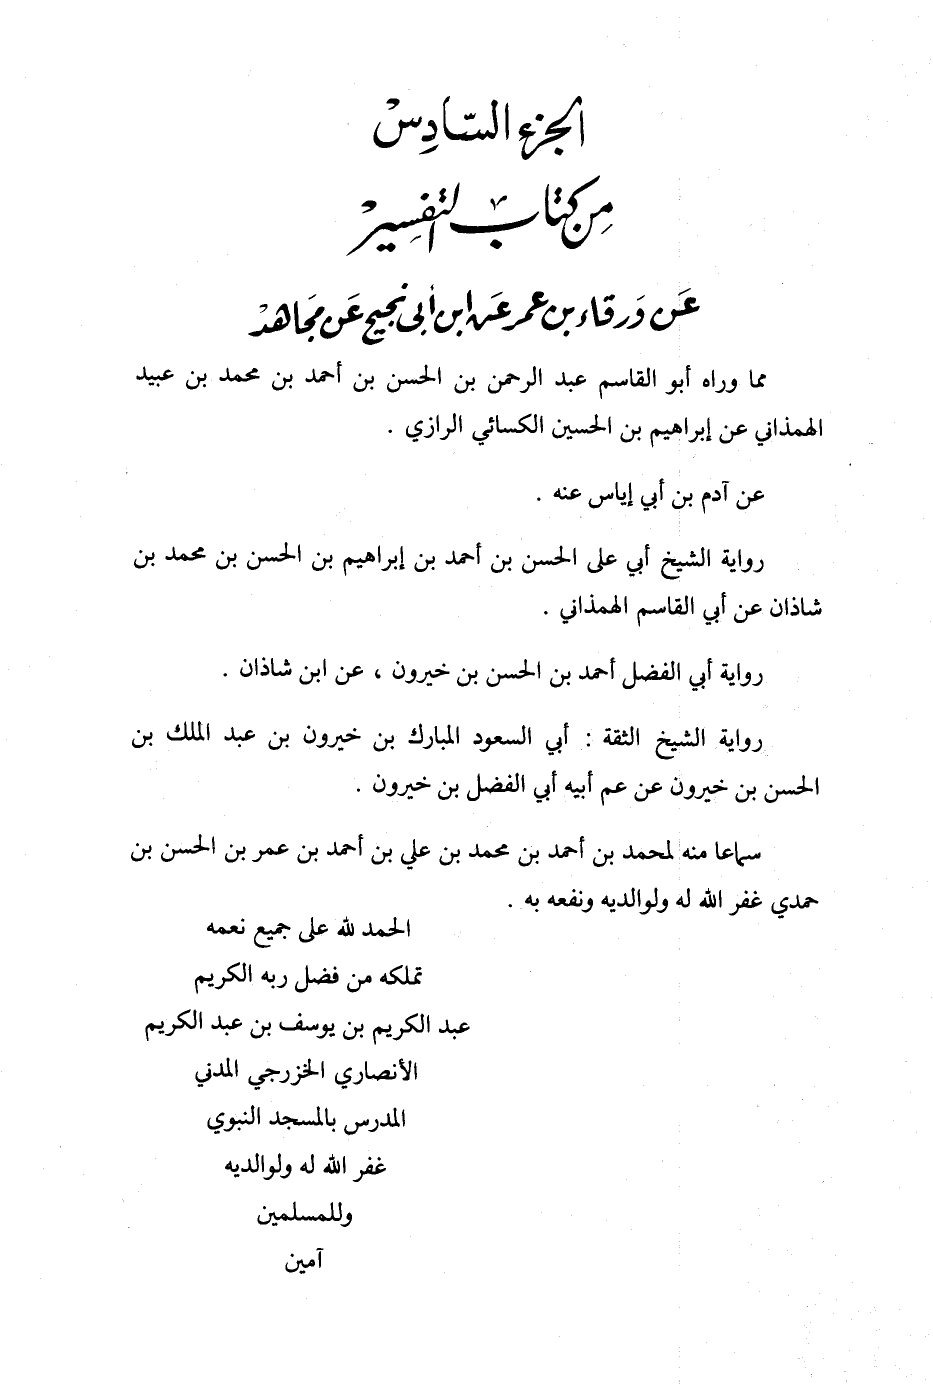 الجزء السّادِسْ
مِن كتاب التفسيرْ
عَن وَرقاء بن عمر عَن ابن أبي نجيح عَن مجَاهدْ
مما وراه أبو القاسم عبد الرحمن بن الحسن بن أحمد بن محمد بن عبيد
الهمذاني عن إبراهيم بن الحسين الكسائي الرازي .
عن آدم بن أبي إياس عنه .
رواية الشيخ أبي على الحسن بن أحمد بن إبراهيم بن الحسن بن محمد بن
شاذان عن أبي القاسم الهمذاني .
رواية أبي الفضل أحمد بن الحسن بن خيرون ، عن ابن شاذان .
رواية الشيخ الثقة : أبي السعود المبارك بن خيرون بن عبد الملك بن
الحسن بن خيرون عن عم أبيه أبي الفضل بن خيرون .
سماعا منه لمحمد بن أحمد بن محمد بن علي بن أحمد بن عمر بن الحسن بن
حمدي غفر الله له ولوالديه ونفعه به .
الحمد لله على جميع نعمه
تملكه من فضل ربه الكريم
عبد الكريم بن يوسف بن عبد الكريم
الأنصاري الخزرجي المدني
المدرس بالمسجد النبوي
غفر الله له ولوالديه
وللمسلمين
آمين